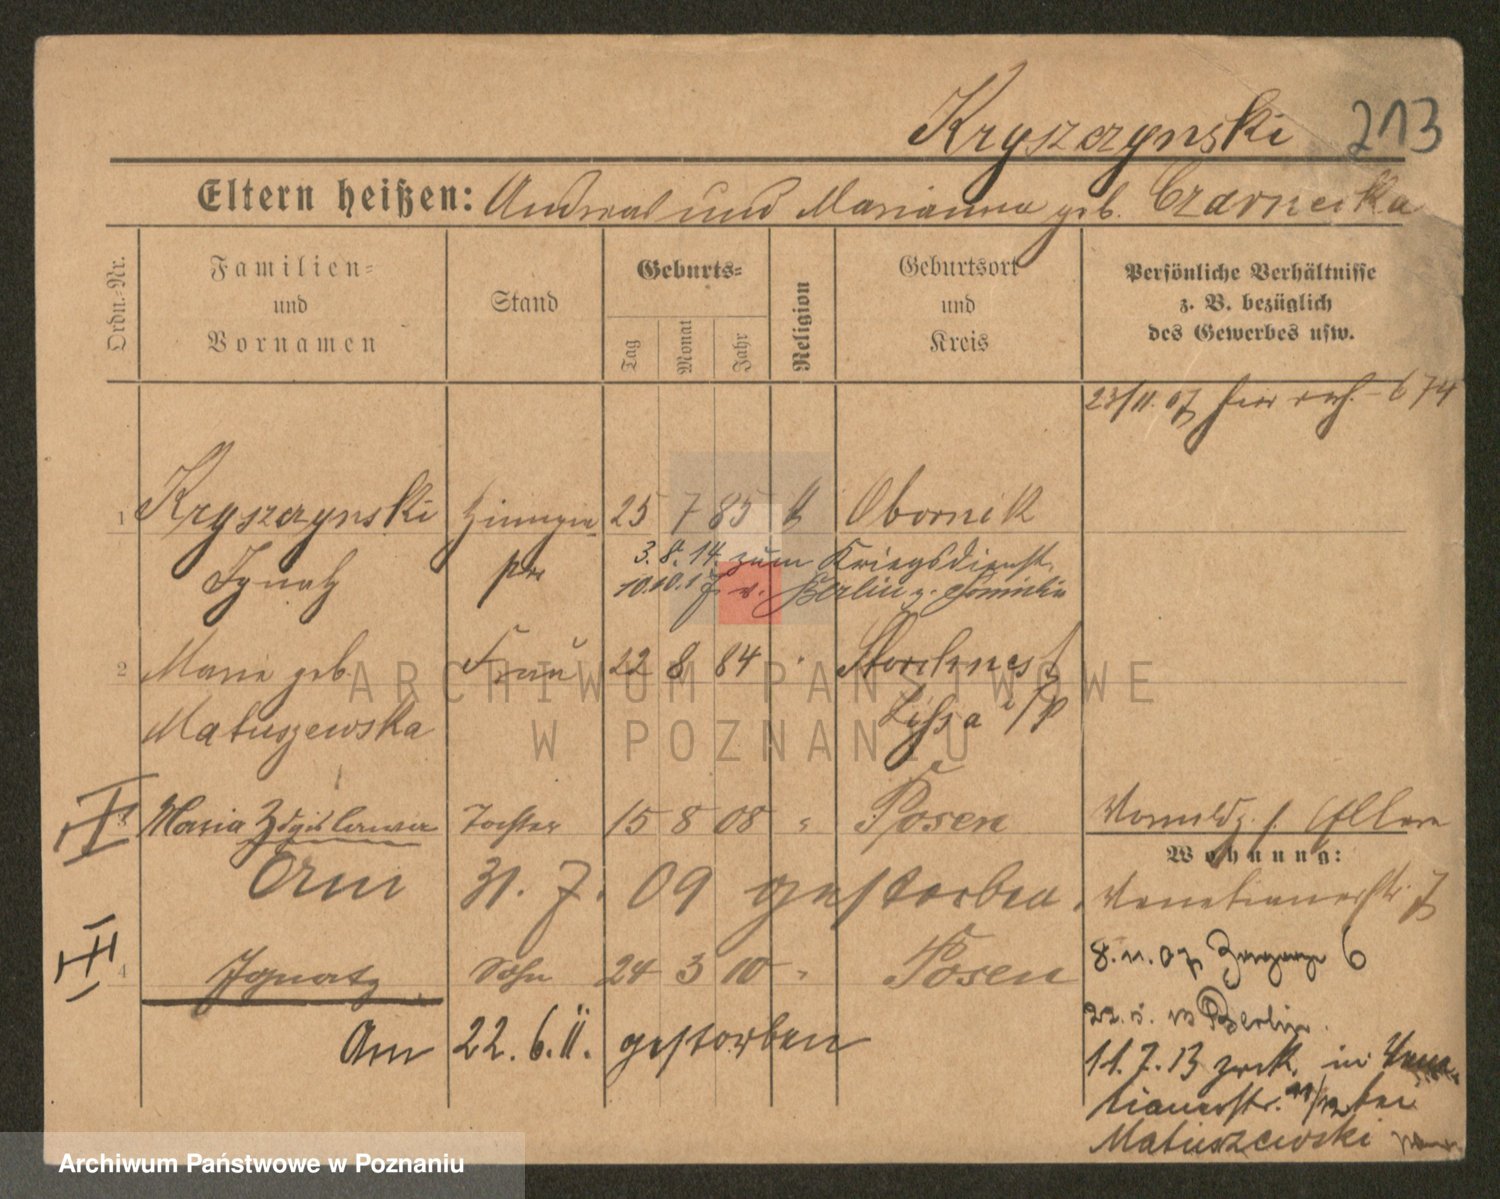 Kryszczynski 213
Eltern heißen: Andreas und Marianna geb. Czarnecka
Ordn.-Nr.
Familien-
und
Vornamen
Stand
Geburts-
Tag
Monat
Jahr
Religion
Geburtsort
und
Kreis
Persönliche Verhältnisse
z. B. bezüglich
des Gewerbes usw.
23/11. 07 hier 674
1 Kryszczynski 25 7 85 k Obornik
Ignatz 3. 8. 14. zum Kriegsdienst.
10.10.17 v. Berlin
2 Maria geb. Frau 22 8 84 " Storchnest
Matuszewska Lissa i/P
3 Maria Tochter 15 8 08 " Posen
Wohnung:
Am 31. 7. 09 gestorben. Venetianerstr. 7
III
4 Ignatz Sohn 24 3 10 " Posen
8. 11. 07 6
Berlin.
Am 22. 6. 11. gestorben
11. 7. 13 zrck. in Vene-
tianerstr. 11/12 bei
Matuszewski
ARCHIWUM PAŃSTWOWE
W POZNANIU
Archiwum Państwowe w Poznaniu